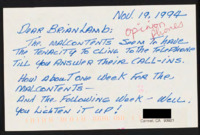 Nov. 19, 1994
Dear Brian Lamb:
opinion phones
The malcontents seem to have
the tenacity to cling to the telephone
till you answer their call-ins.
How about one week for the
malcontents—
and the following week—well.
You listen it up!